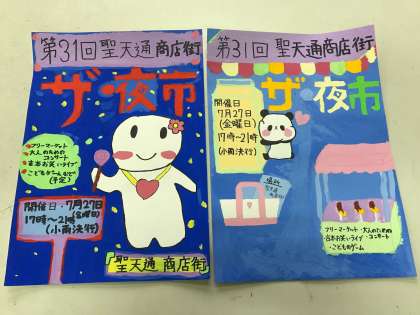 第31回 聖天通 商店街
ザ・夜市
フリーマーケット
大人のための
コンサート
吉本お笑いライブ
こどもゲームなど
(予定)
開催日・7月27日
(金曜日)
17時〜21時
(小雨決行)
聖天通 商店街
第31回 聖天通商店街
ザ・夜市
開催日
7月27日
(金曜日)
17時〜21時
(小雨決行)
場所
フリーマーケット・大人のための
・吉本お笑いライブ・コンサート
・こどものゲーム